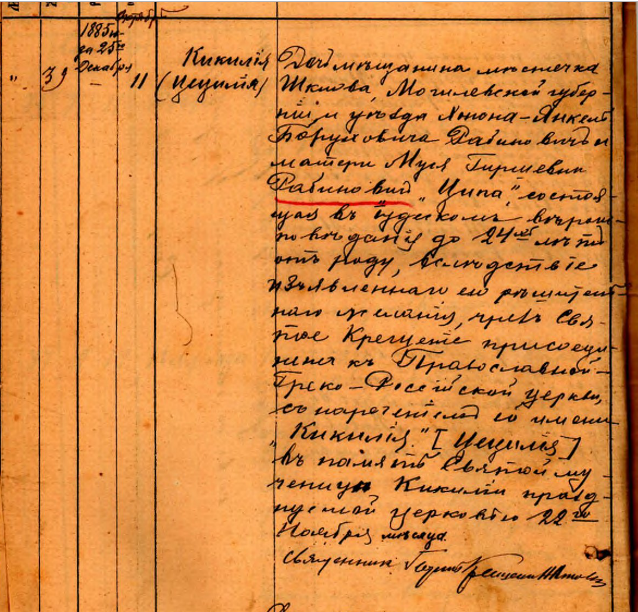 1885 г.
за 25го
Декабря
39
11
Кикилія
(Цецилія)
Дочь мѣщанина мѣстечка
Шклова, Могилевской губер-
ніи и уѣзда Нонона-Янкеля
Боруховича Рабиновичъ и
матери Муся Гиршевны
Рабинович „Ципа," состоя-
щая въ Іудейскомъ вѣроис-
повѣданіи до 24хъ лѣтъ
отъ роду, вслѣдствіе
изъявленнаго ею рѣшитель-
наго желанія, чрезъ Свя-
тое Крещеніе, присоеди-
нена къ Православной-
Греко-Россійской церкви,
съ нареченіемъ ей имени
„Кикилія." [Цецилія]
въ память Святой му-
ченицы Кикиліи празд-
нуемой церковью 22го
Ноября мѣсяца.
Священник